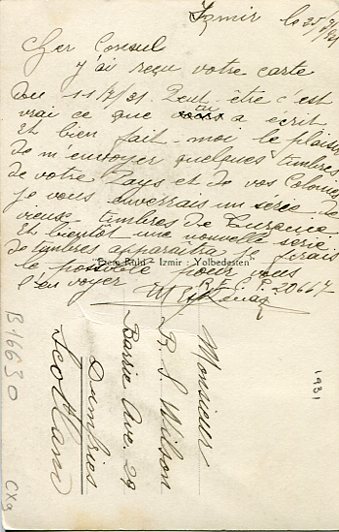 Izmir le 25/7/931
Cher Consul
j'ai reçu votre carte
du 11/7/31. Peut être c'est
vrai ce que vous tu a écrit
Et bien fait-moi le plaisir
de m'envoyer quelques timbres
de votre Pays et de vos Colonies
je vous enverrais un serie de
vieux timbres de Turquie
Et bientôt une nouvelle serie
de timbres apparaîtra je ferais
"Ferit Ruhi - Izmir : Yolbedesten"
le possible pour vous
l'en voyer
20667
Monsieur
R. S. Wilson
Barrie Ave. 29
Dumfries
Scotland
1931
B16630
CX9